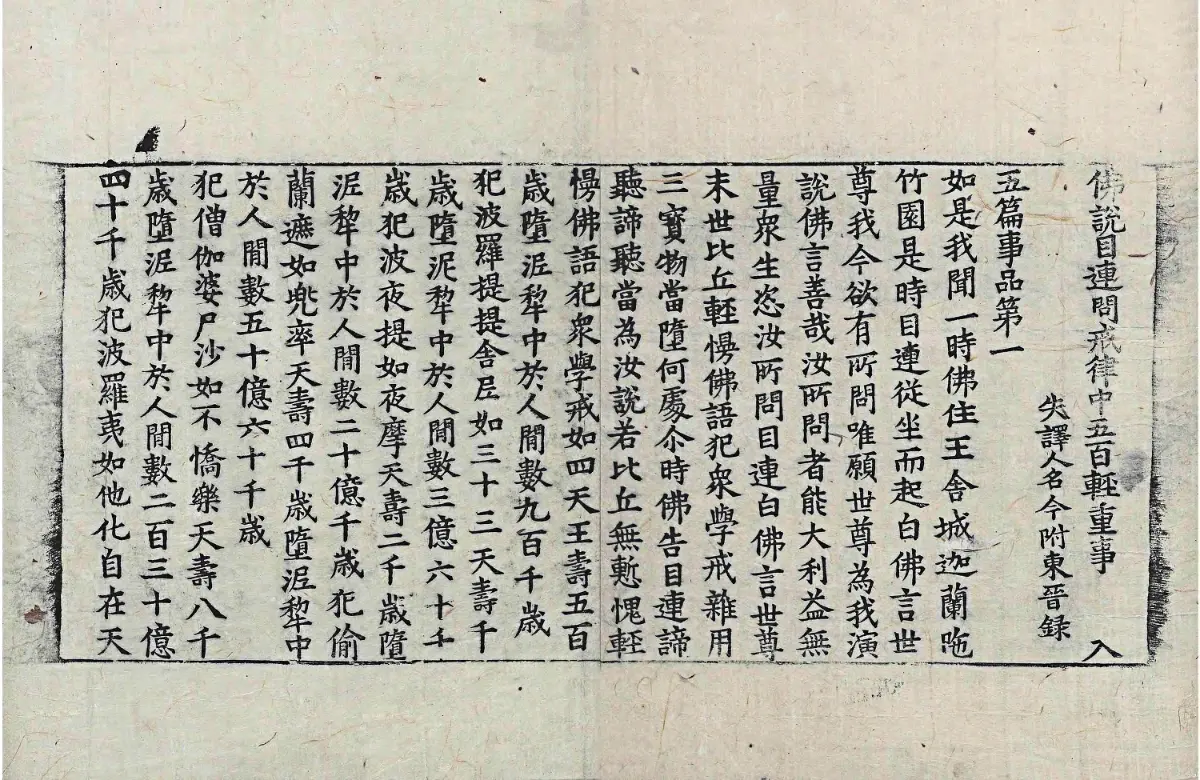 佛說目連問戒律中五百輕重事 入
失譯人名今附東晉録
五篇事品第一
如是我聞一時佛住王舍城迦蘭陁
竹園是時目連從坐而起白佛言世
尊我今欲有所問唯願世尊為我演
說佛言善哉汝所問者能大利益無
量衆生恣汝所問目連白佛言世尊
末世比丘輕慢佛語犯衆學戒雜用
三寶物當墮何處尒時佛告目連諦
聽諦聽當為汝說若比丘無慙愧輕
慢佛語犯衆學戒如四天王壽五百
歲墮泥犂中於人閒數九百千歲
犯波羅提提舍尼如三十三天壽千
歲墮泥犂中於人閒數三億六十千
歲犯波夜提如夜摩天壽二千歲墮
泥犂中於人閒數二十億千歲犯偷
蘭遮如兜率天壽四千歲墮泥犂中
於人閒數五十億六十千歲
犯僧伽婆尸沙如不憍樂天壽八千
歲墮泥犂中於人閒數二百三十億
四十千歲犯波羅夷如他化自在天